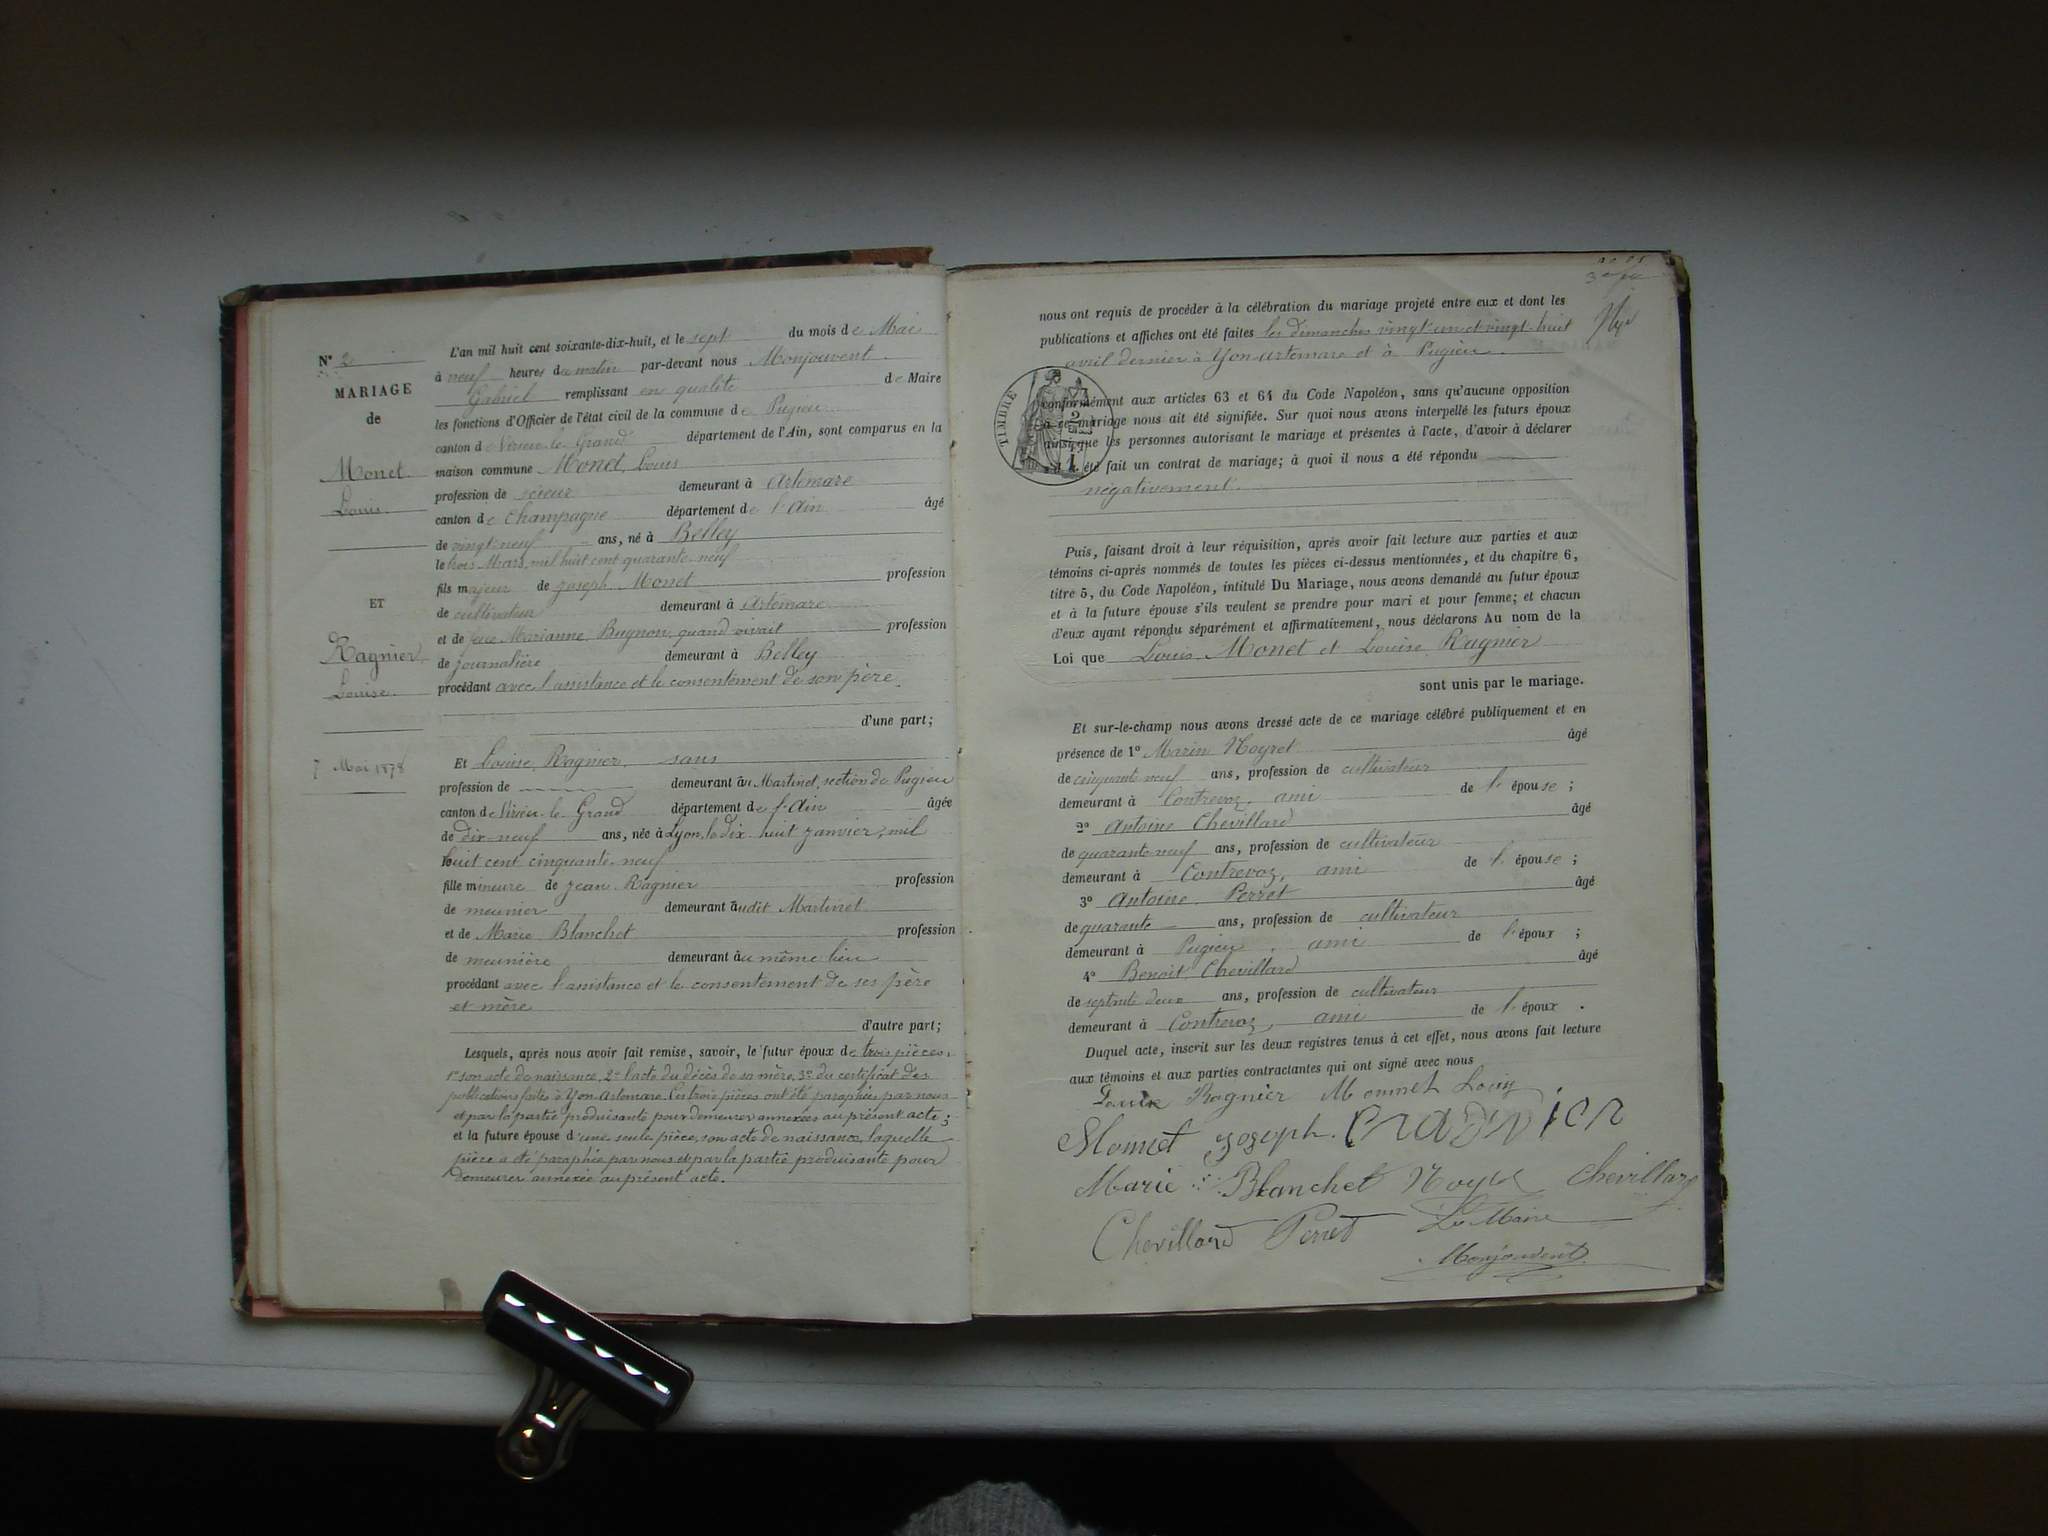 N° 2
MARIAGE
de
Monet
Louis
ET
Ragnier
Louise
7 Mai 1878
L'an mil huit cent soixante-dix-huit, et le sept du mois de Mai
à neuf heures du matin par-devant nous Monjouvent
Gabriel remplissant en qualité de Maire
les fonctions d'Officier de l'état civil de la commune de Pugieu
canton de Virieu-le-Grand département de l'Ain, sont comparus en la
maison commune Monet, Louis
profession de scieur demeurant à Artemare
canton de Champagne département de l'Ain âgé
de vingt-neuf ans, né à Belley
le trois Mars, mil huit cent quarante-neuf
fils majeur de Joseph Monet profession
de cultivateur demeurant à Artemare
et de feue Marianne Bugnon, quand vivait profession
de journalière demeurant à Belley
procédant avec l'assistance et le consentement de son père
d'une part;
Et Louise Ragnier sans
profession de demeurant au Martinet, section de Pugieu
canton de Virieu-le-Grand département de l'Ain âgée
de dix-neuf ans, née à Lyon, le dix-huit janvier, mil
huit cent cinquante-neuf
fille mineure de Jean Ragnier profession
de meunier demeurant audit Martinet
et de Marie Blanchet profession
de meunière demeurant au même lieu
procédant avec l'assistance et le consentement de ses père
et mère
d'autre part;
Lesquels, après nous avoir fait remise, savoir, le futur époux de trois pièces,
1° son acte de naissance, 2° l'acte du décès de sa mère, 3° du certificat des
publications faites à Yon-Artemare. Ces trois pièces ont été paraphées par nous
et par la partie produisante pour demeurer annexées au présent acte;
et la future épouse d'une seule pièce, son acte de naissance, laquelle
pièce a été paraphée par nous et par la partie produisante pour
demeurer annexée au présent acte.
nous ont requis de procéder à la célébration du mariage projeté entre eux et dont les
publications et affiches ont été faites les dimanches vingt-un et vingt-huit
avril dernier à Yon-Artemare et à Pugieu
TIMBRE
conformément aux articles 63 et 64 du Code Napoléon, sans qu'aucune opposition
à ce mariage nous ait été signifiée. Sur quoi nous avons interpellé les futurs époux
ainsi que les personnes autorisant le mariage et présentes à l'acte, d'avoir à déclarer
s'il a été fait un contrat de mariage; à quoi il nous a été répondu
négativement.
Puis, faisant droit à leur réquisition, après avoir fait lecture aux parties et aux
témoins ci-après nommés de toutes les pièces ci-dessus mentionnées, et du chapitre 6,
titre 5, du Code Napoléon, intitulé Du Mariage, nous avons demandé au futur époux
et à la future épouse s'ils veulent se prendre pour mari et pour femme; et chacun
d'eux ayant répondu séparément et affirmativement, nous déclarons Au nom de la
Loi que Louis Monet et Louise Ragnier
sont unis par le mariage.
Et sur-le-champ nous avons dressé acte de ce mariage célébré publiquement et en
présence de 1° Marin Noyret âgé
de cinquante neuf ans, profession de cultivateur
demeurant à Contrevoz, ami de l'épouse;
2° Antoine Chevillard âgé
de quarante neuf ans, profession de cultivateur
demeurant à Contrevoz, ami de l'épouse;
3° Antoine Perret âgé
de quarante ans, profession de cultivateur
demeurant à Pugieu, ami de l'époux;
4° Benoit Chevillard âgé
de septante deux ans, profession de cultivateur
demeurant à Contrevoz, ami de l'époux.
Duquel acte, inscrit sur les deux registres tenus à cet effet, nous avons fait lecture
aux témoins et aux parties contractantes qui ont signé avec nous
Ragnier Monnet Louis
Monnet Joseph
Marie Blanchet Noyret Chevillard
Chevillard Perret Le Maire
Monjouvent